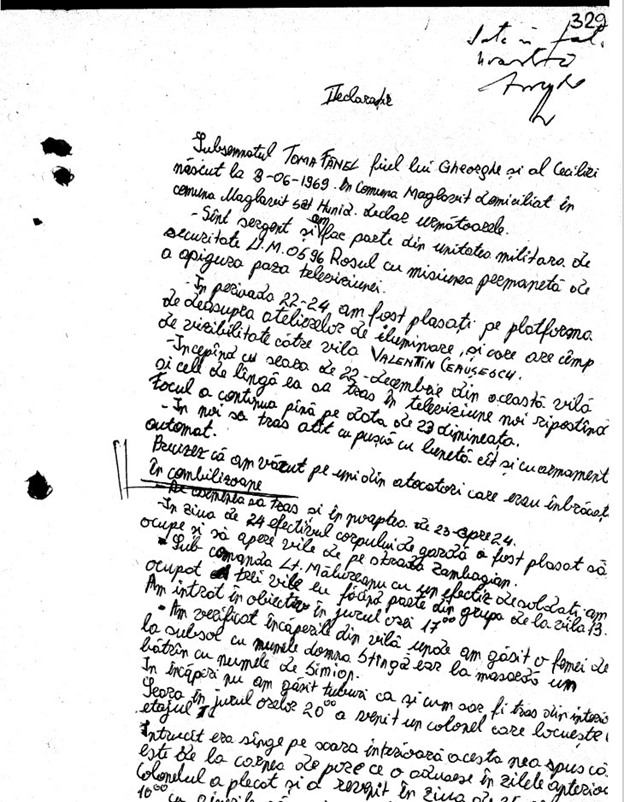 329
Declarație
Subsemnatul TOMA FĂNEL fiul lui Gheorghe și al Ceciliei
născut la 3-06-1969. în comuna Maglavit domiciliat în
comuna Maglavit sat Hunia. declar următoarele.
-Sînt sergent și am fac parte din unitatea militara de
securitate U.M.0596 Roșul cu misiunea permanetă de
a asigura paza televiziunei.
-În perioada 22-24 am fost plasați pe platforma
de deasupra atelierelor de iluminare, și care are cîmp
de vizibilitate către vila VALENTIN CEAUȘESCU.
-Incepînd cu seara de 22-decembrie din această vilă
și cele de lîngă ea sa tras în televiziune noi ripostînd
Focul a continua pînă pe data de 23 dimineața.
-In noi sa tras atît cu pușcă cu lunetă cît și cu armament
automat.
Precizez că am văzut pe unii din atacatori care erau înbrăcați
în conbilizoane
-De asemenea sa tras si în noaptea de 23 spre 24.
-In ziua de 24 efectivul corpului de gardă a fost plasat să
ocupe și să apere vile de pe strada Zambagian.
-Sub comanda Lt. Mălureanu cu un efectiv de soldați am
ocupat trei vile eu făcînd parte din grupa de la vila 13.
Am intrat în obiectiv în jurul orei 17⁰⁰
-Am verificat încăperile din vilă unde am găsit o femei de
la subsol cu numele domna Stîngă iar la masardo um
bătrîn cu numele de Simion.
In încăperi nu am găsit tuburi ca și cum sar fi tras din interio
Seara în jurul orelor 20⁰⁰ a venit un colonel care locuește
etajul II
Intrucît era sînge pe scara interioară acesta nea spus că
este de la carnea de porc ce o adusese în zilele anterioa
Colonelul a plecat și a revenit în ziua de
10⁰⁰ cu